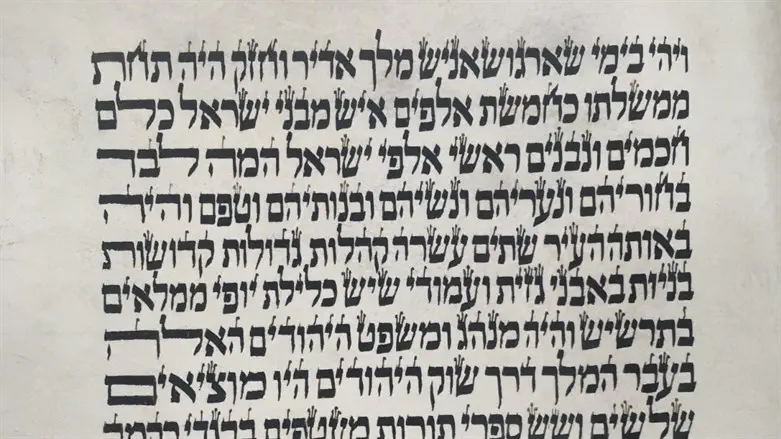 ויהי בימי שארגושאניש מלך אדיר וחזק היה תחת
ממשלתו כחמשת אלפים איש מבני ישראל כלם
חכמים ונבנים ראשי אלפי ישראל המה לבד
בחוריהם ונעריהם ונשיהם ובנותיהם וטפם והיה
באותה העיר שתים עשרה קהלות גדולות קדושות
בניות באבני גזית ועמודי שיש כלילת יופי ממלאים
בתרשיש והיה מנהג ומשפט היהודים האלה
בעבר המלך דרך שוק היהודים היו מוציאים
שלשים ושש ספרי תורות מעטפים בבגדי